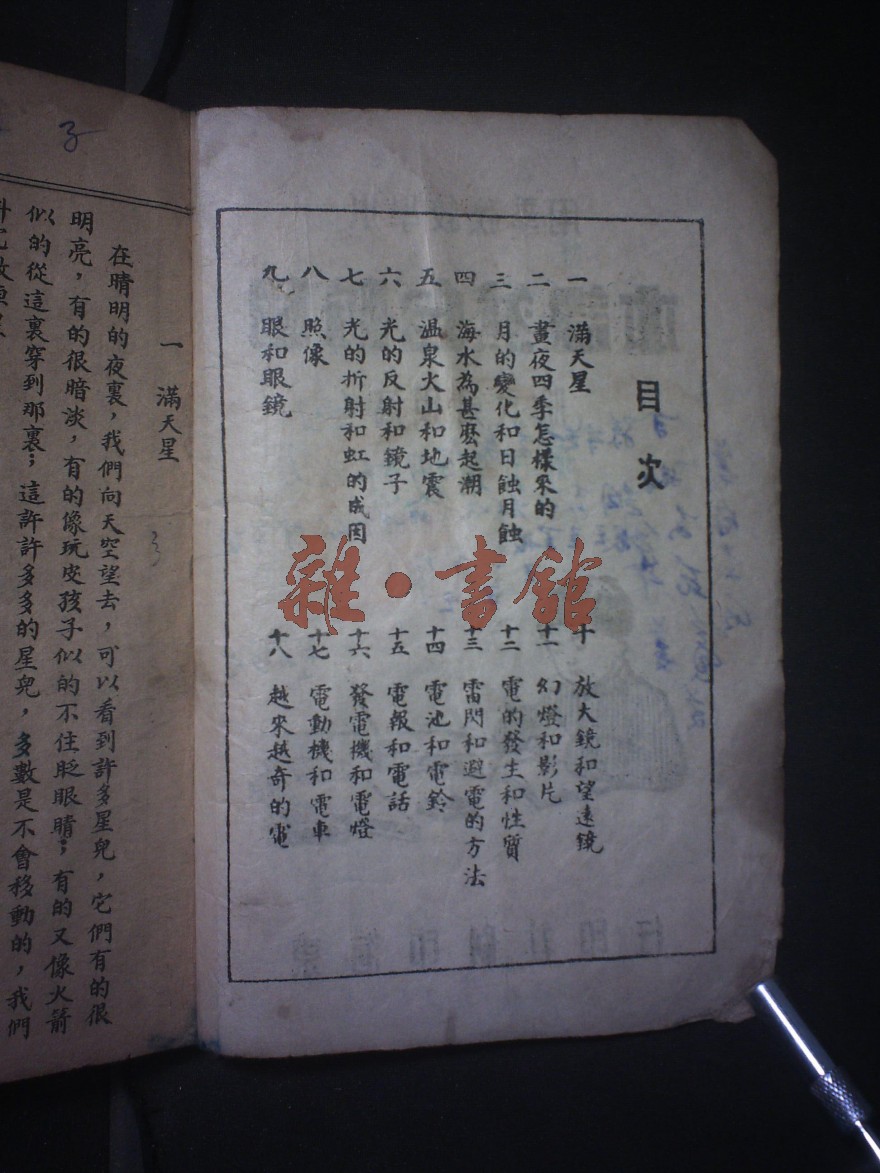 目次
一 滿天星
二 晝夜四季怎樣來的
三 月的變化和日蝕月蝕
四 海水為甚麽起潮
五 溫泉火山和地震
六 光的反射和鏡子
七 光的折射和虹的成因
八 照像
九 眼和眼鏡
十 放大鏡和望遠鏡
十一 幻燈和影片
十二 電的發生和性質
十三 雷閃和避電的方法
十四 電池和電鈴
十五 電報和電話
十六 發電機和電燈
十七 電動機和電車
十八 越來越奇的電
雜·書館
一 滿天星
在晴明的夜裏，我們向天空望去，可以看到許多星兒，它們有的很
明亮，有的很暗淡，有的像玩皮孩子似的不住眨眼睛；有的又像火箭
似的從這裏穿到那裏；這許許多多的星兒，多數是不會移動的，我們